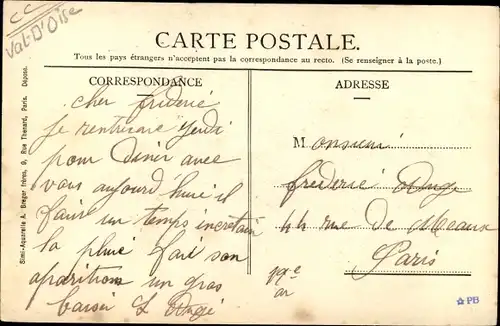 CC
Val-D'Oise
CARTE POSTALE.
Tous les pays étrangers n'acceptent pas la correspondance au recto. (Se renseigner à la poste.)
CORRESPONDANCE
cher frideric
Je rentrerai Jeudi
pour Diner avec
vous aujourd'hui il
faire un temps incertain
la pluie fait son
aparition un gros
baiser L Angé
Simi-Aquarelle A. Breger frères, 9, Rue Thenard, Paris. Déposé.
ADRESSE
Monsieur
frederic Angé
44 rue De Meaux
Paris
19e
ar
PB